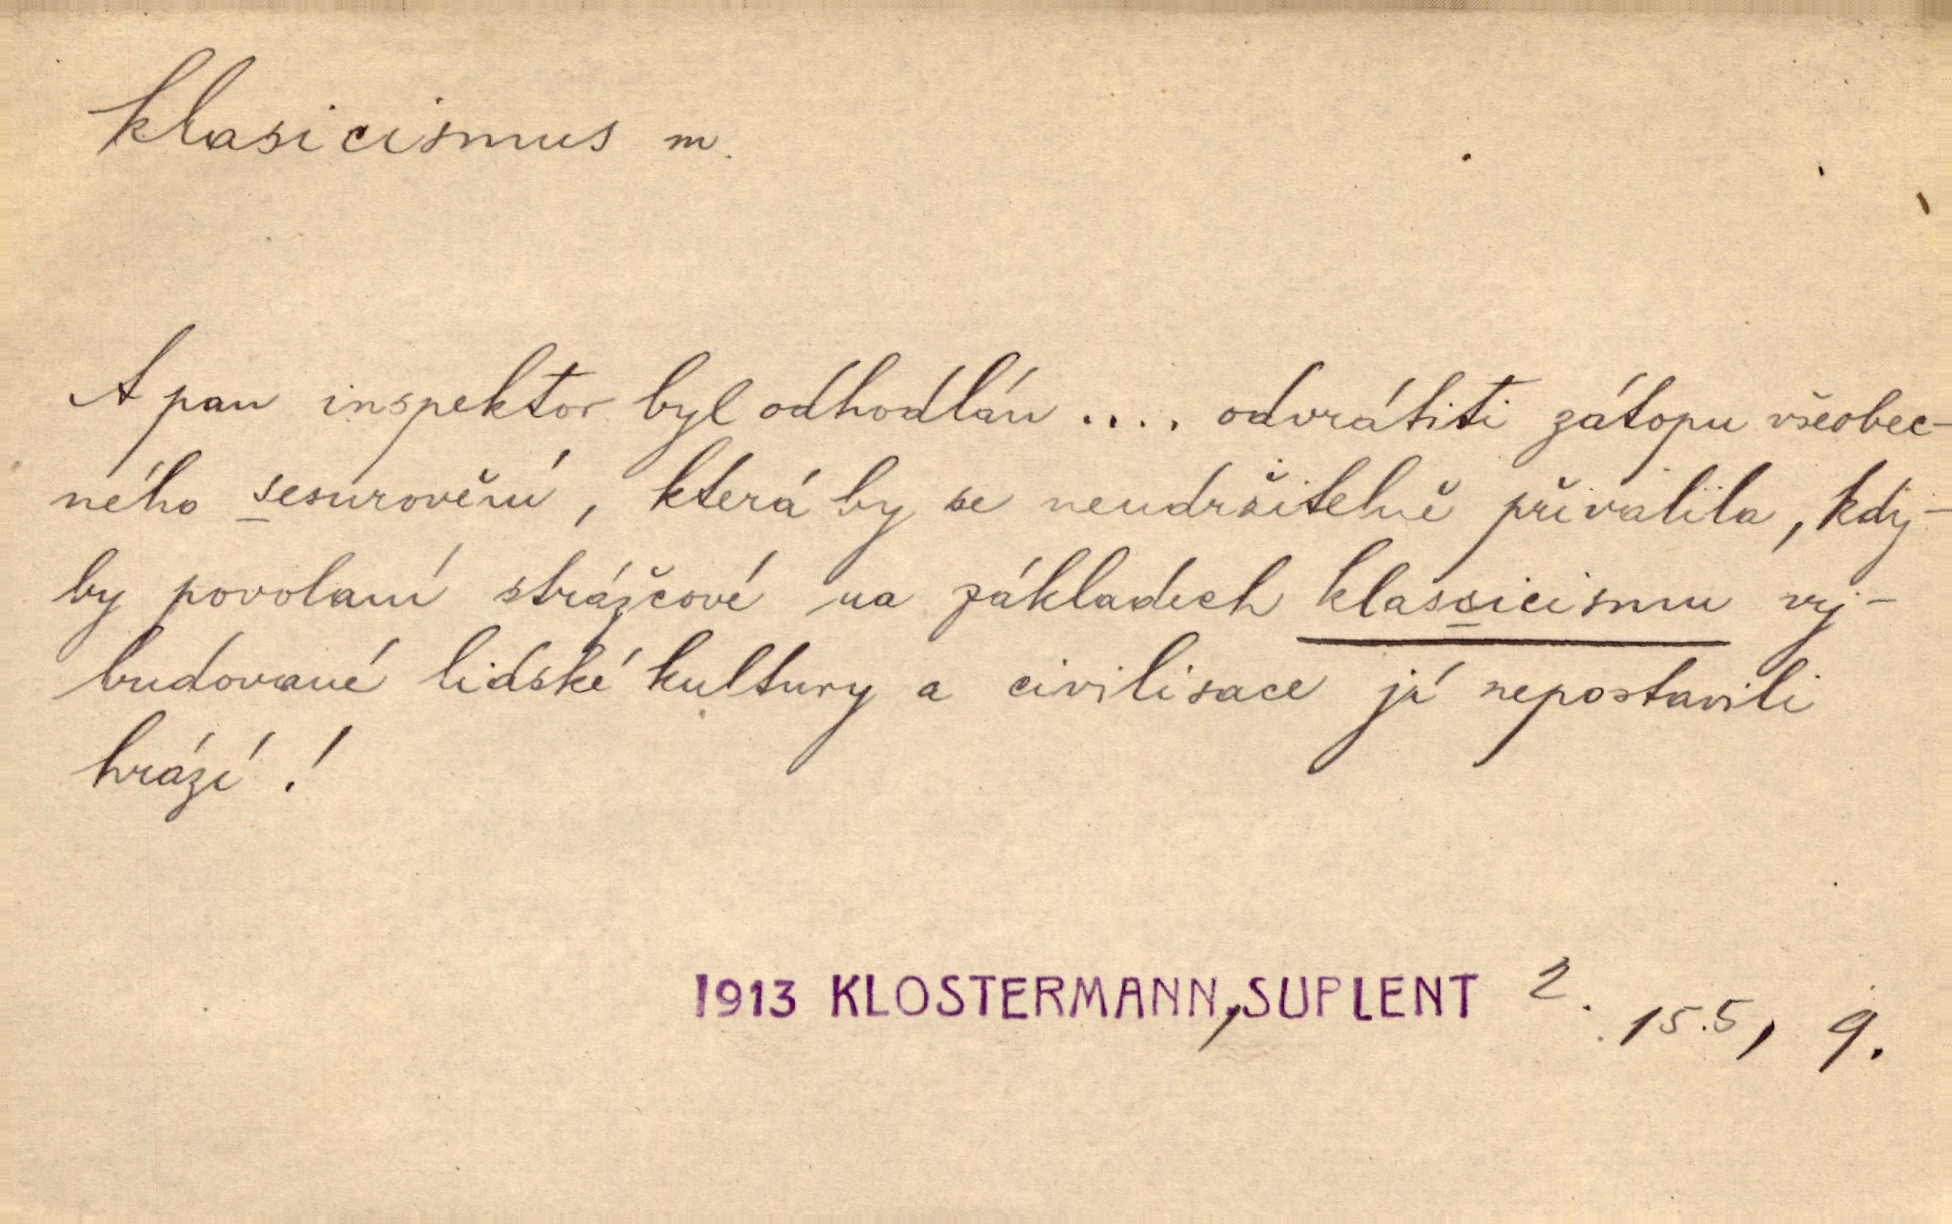 klasicismus m.
A pan inspektor byl odhodlán .... odvrátiti zátopu všeobec-
ného sesurovění, která by se neudržitelně přivalila, kdy-
by povolaní strážcové na základech klassicismu vy-
budované lidské kultury a civilisace jí nepostavili
hrází!
1913 KLOSTERMANN, SUPLENT 2. 15.5, 9.